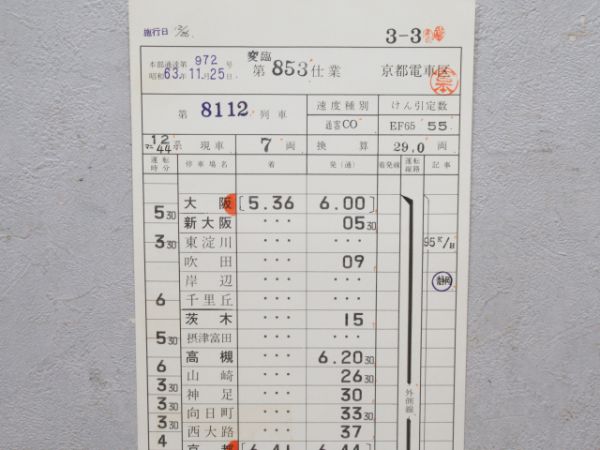 施行日 12/26. 3-3
本部達達第972号 変臨
昭和63年11月25日 第853仕業 京都電車区
第 8112 列車 速度種別 けん引定数
通客C0 EF65 55.
マニ12/44系 現車 7両 換算 29.0両
運転時分 停車場名 着 発(通) 着発線 運転線路 記事
大阪 [5.36 6.00]
5 30
新大阪 ・・・ 05 30
3 30 東淀川 ・・・ ・・・ 95K/H
吹田 ・・・ 09
岸辺 ・・・ ・・・ 静岡
6 千里丘 ・・・ ・・・
茨木 ・・・ 15
5 30 摂津富田 ・・・ ・・・
高槻 ・・・ 6.20 30
6
山崎 ・・・ 26 30
3 30
神足 ・・・ 30 外側線
3 30
向日町 ・・・ 33 30
3 30
西大路 ・・・ 37
4 京都 [6.41 6.44]